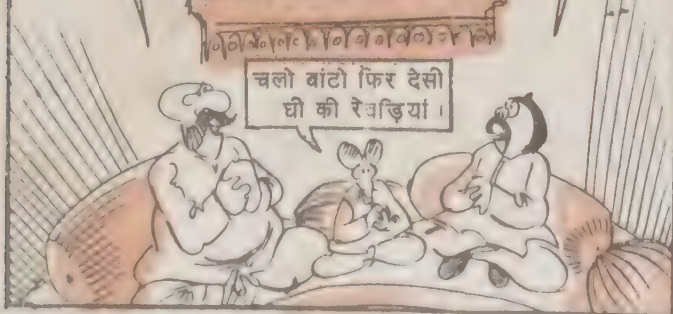 चलो बांटो फिर देसी
घी की रेवड़ियां ।